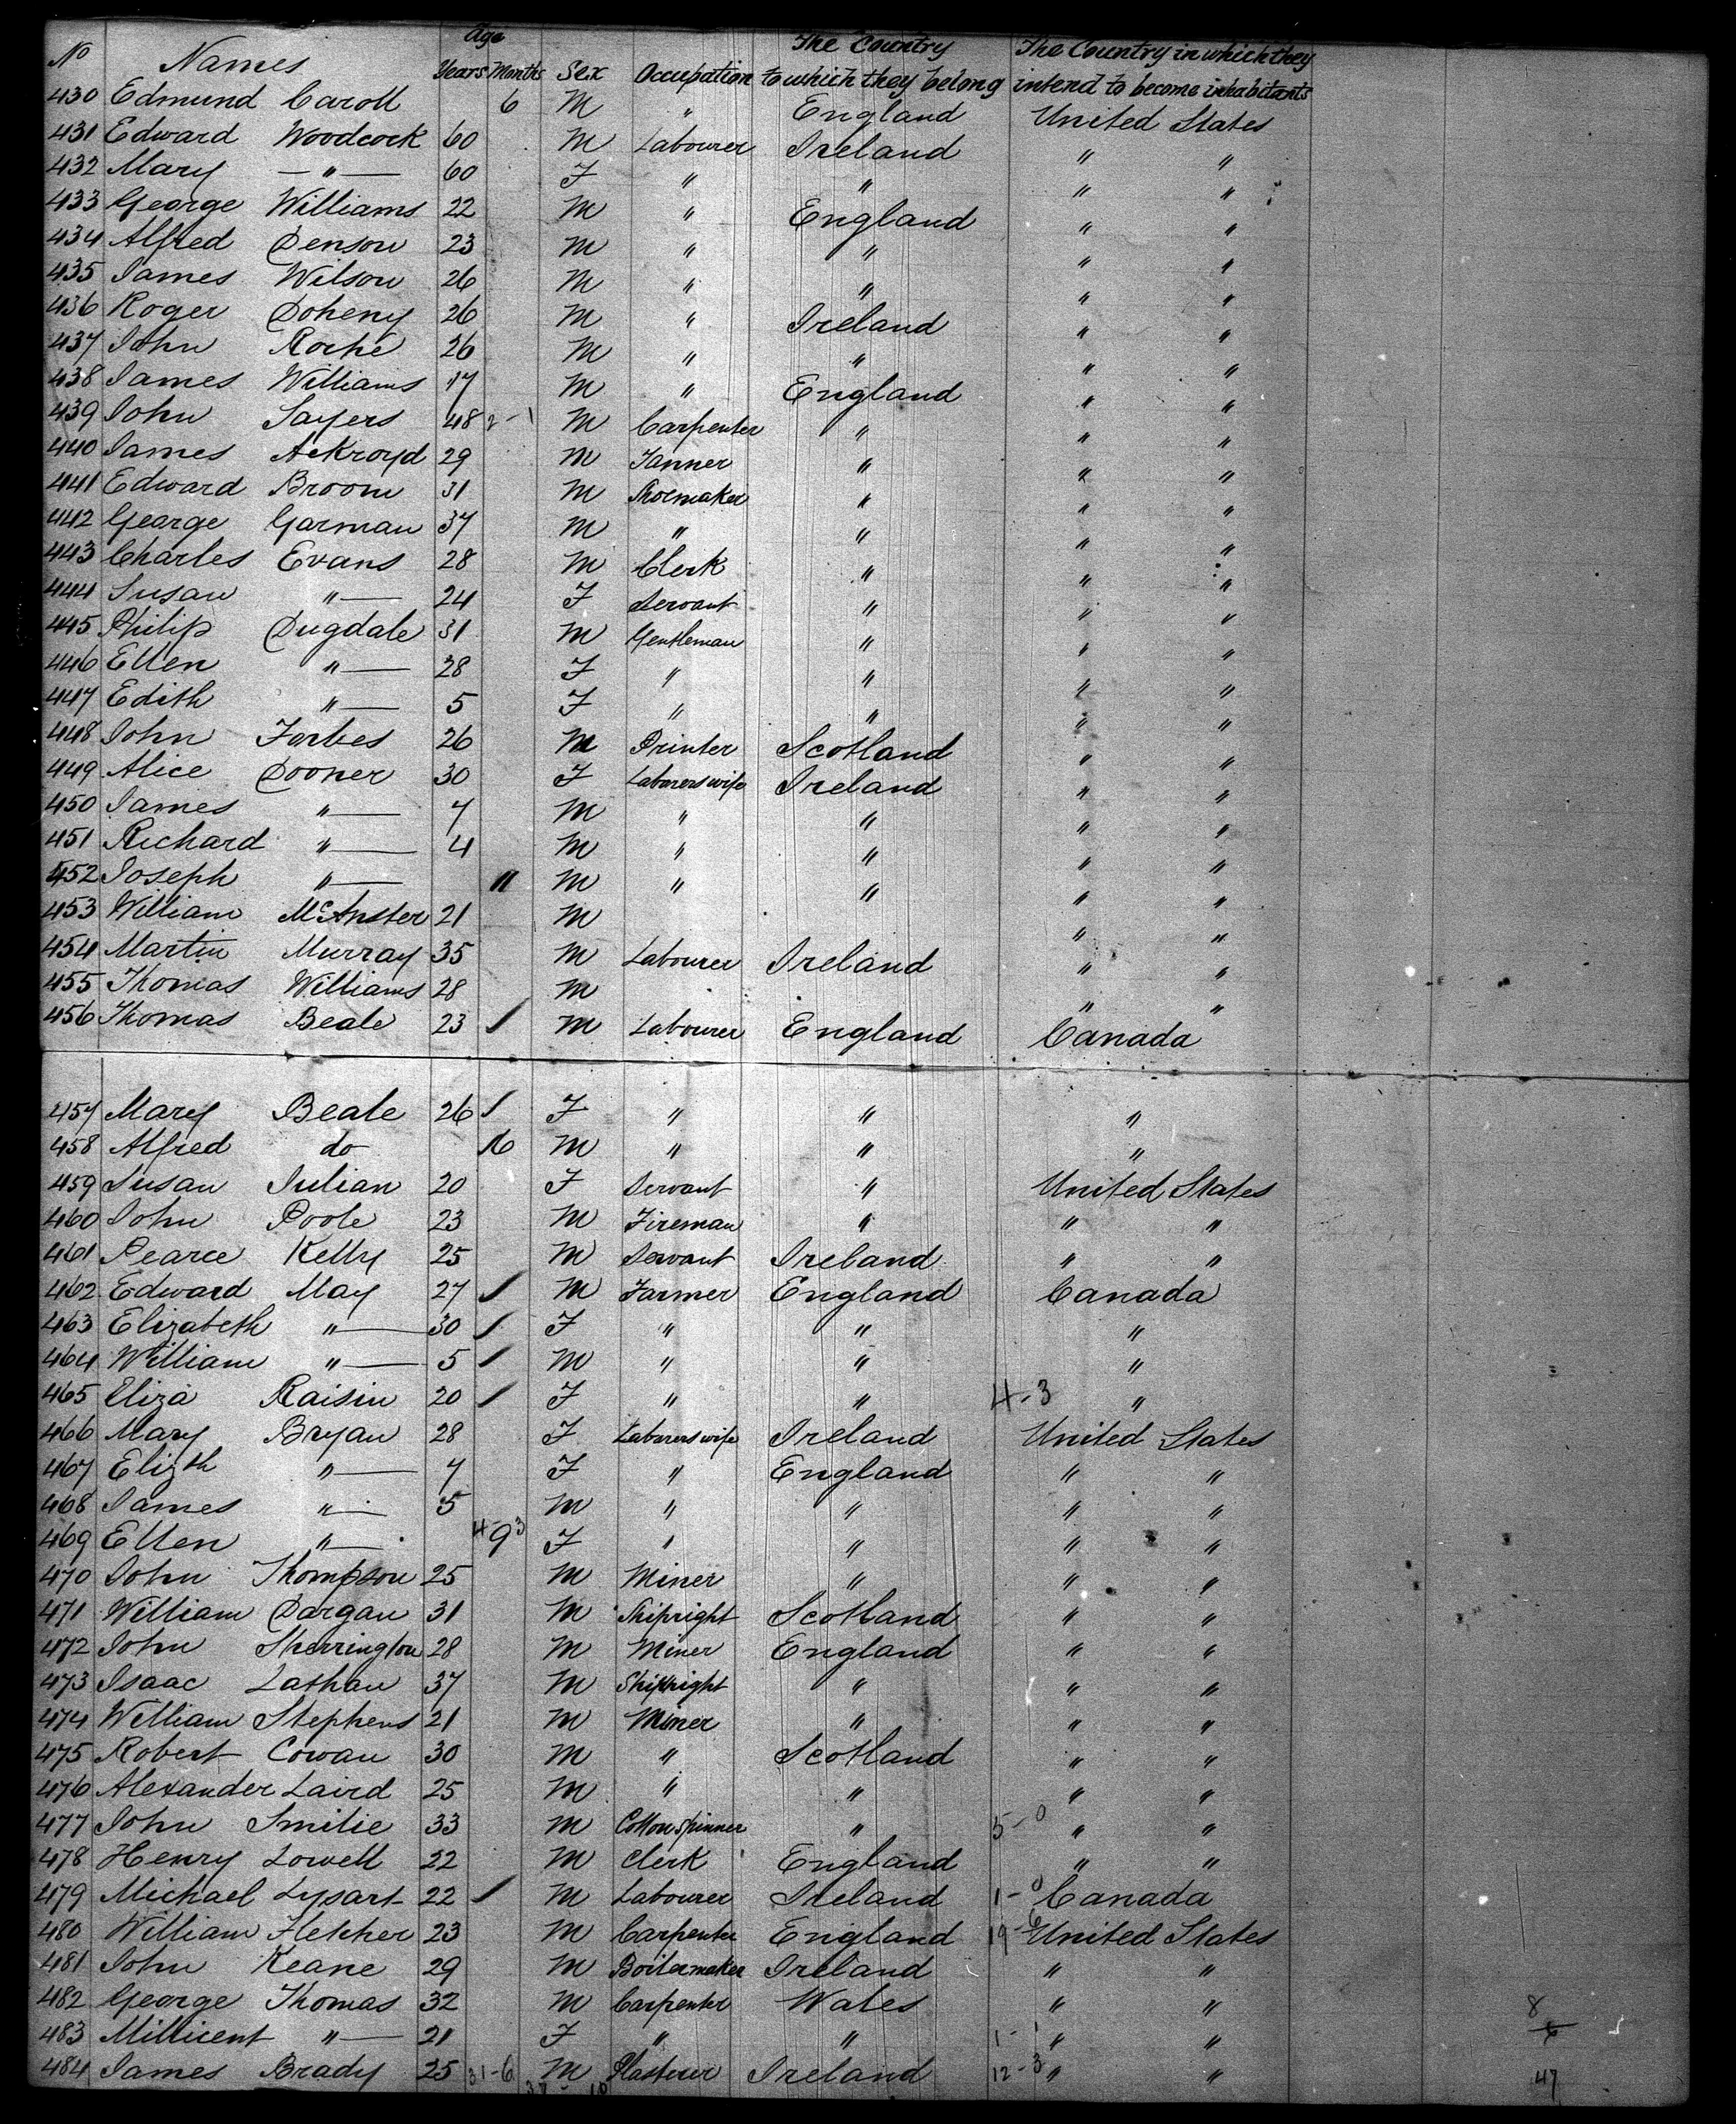 No Names Age Years Months Sex Occupation The Country to which they belong The Country in which they intend to become inhabitants
430 Edmund Caroll 6 M " England United States
431 Edward Woodcock 60 M Labourer Ireland " "
432 Mary — " — 60 F " " " "
433 George Williams 22 M " England " "
434 Alfred Denson 23 M " " " "
435 James Wilson 26 M " " " "
436 Roger Doheny 26 M " Ireland " "
437 John Roche 26 M " " " "
438 James Williams 17 M " England " "
439 John Sayers 48 2-1 M Carpenter " " "
440 James Ackroyd 29 M Tanner " " "
441 Edward Broom 31 M Shoemaker " " "
442 George Garman 37 M " " " "
443 Charles Evans 28 M Clerk " " "
444 Susan " — 24 F Servant " " "
445 Philip Dugdale 31 M Gentleman " " "
446 Ellen " — 28 F " " " "
447 Edith " — 5 F " " " "
448 John Forbes 26 M Printer Scotland " "
449 Alice Dooner 30 F Laborers wife Ireland " "
450 James " — 7 M " " " "
451 Richard " — 4 M " " " "
452 Joseph " — 11 M " " " "
453 William McAnster 21 M " "
454 Martin Murray 35 M Labourer Ireland " "
455 Thomas Williams 28 M " "
456 Thomas Beale 23 / M Labourer England Canada
457 Mary Beale 26 / F " " "
458 Alfred do 6 M " " "
459 Susan Julian 20 F Servant " United States
460 John Poole 23 M Fireman " " "
461 Pearce Kelly 25 M Servant Ireland " "
462 Edward May 27 / M Farmer England Canada
463 Elizabeth " — 30 / F " " "
464 William " — 5 / M " " "
465 Eliza Raisin 20 / F " " 4-3 "
466 Mary Bryan 28 F Laborers wife Ireland United States
467 Elizth " — 7 F " England " "
468 James " — 5 M " " " "
469 Ellen " — 4-3 9 F " " " "
470 John Thompson 25 M Miner " " "
471 William Dargan 31 M Shipright Scotland " "
472 John Sherrington 28 M Miner England " "
473 Isaac Lathan 37 M Shipright " " "
474 William Stephens 21 M Miner " " "
475 Robert Cowan 30 M " Scotland " "
476 Alexander Laird 25 M " " " "
477 John Smilie 33 M Cotton spinner " 5-0 " "
478 Henry Lowell 22 M Clerk England " "
479 Michael Lysart 22 / M Labourer Ireland 1-0 Canada
480 William Fletcher 23 M Carpenter England 19-6 United States
481 John Keane 29 M Boilermaker Ireland " "
482 George Thomas 32 M Carpenter Wales " " 8
483 Millicent " — 21 F " " 1-1 " " 6
484 James Brady 25 31-6 M Plasterer Ireland 12-3 " " 47